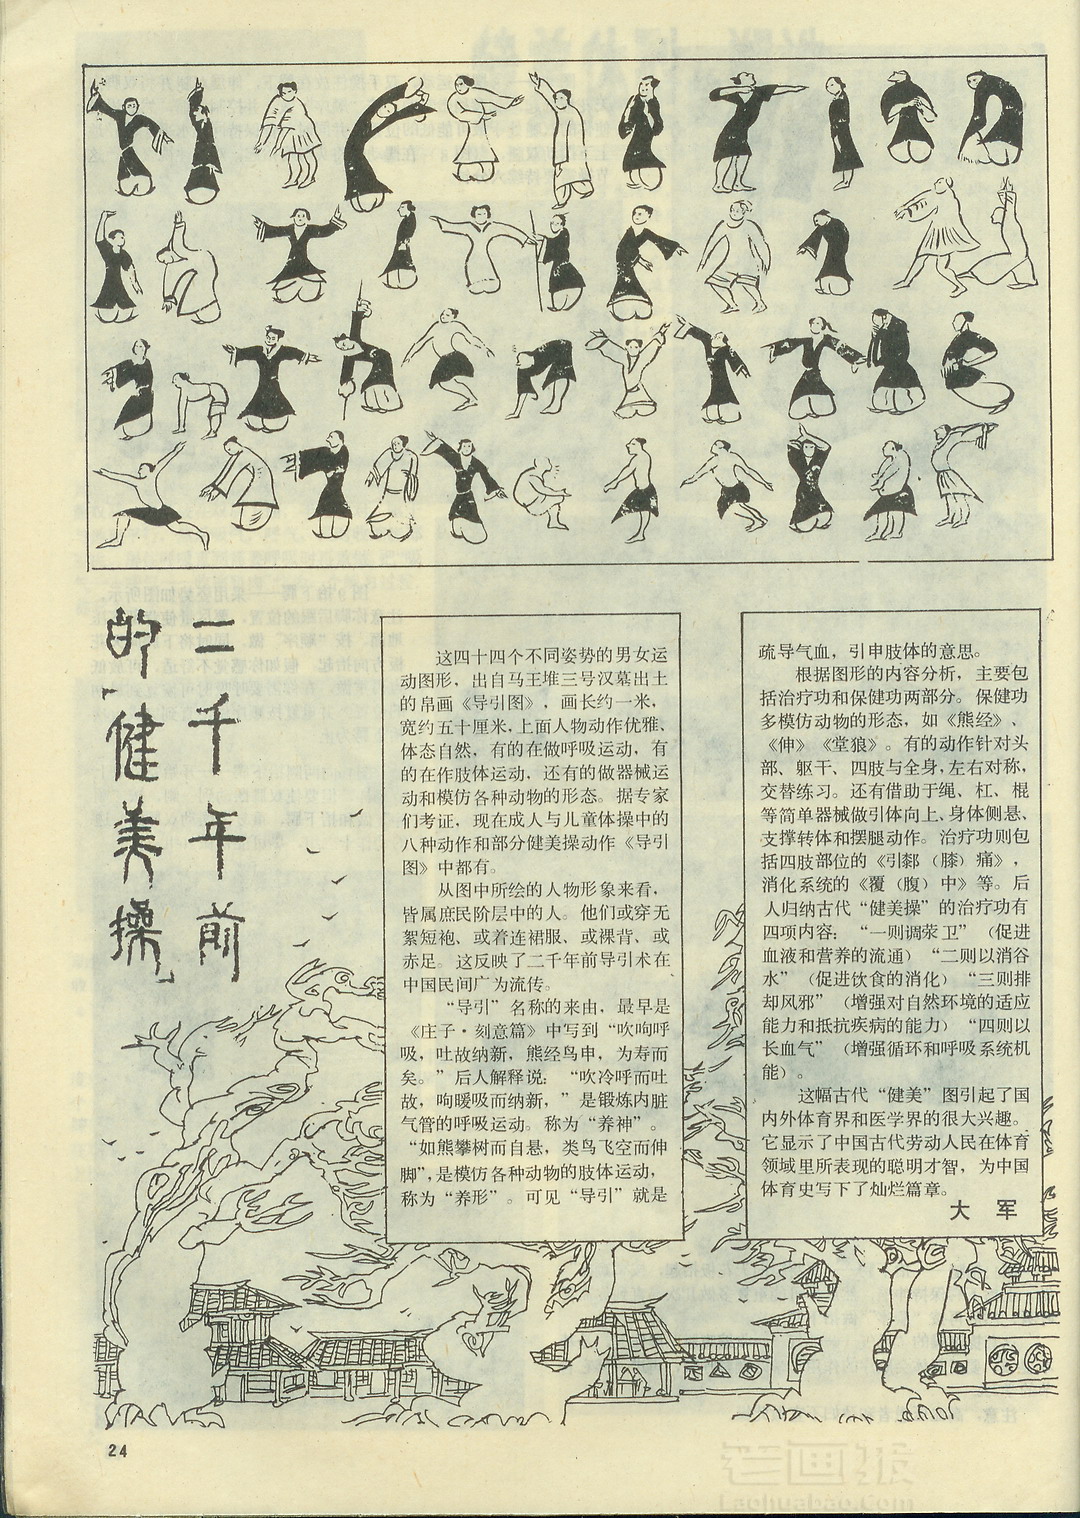 二千年前
的“健美操”
这四十四个不同姿势的男女运
动图形，出自马王堆三号汉墓出土
的帛画《导引图》，画长约一米，
宽约五十厘米，上面人物动作优雅、
体态自然，有的在做呼吸运动，有
的在作肢体运动，还有的做器械运
动和模仿各种动物的形态。据专家
们考证，现在成人与儿童体操中的
八种动作和部分健美操动作《导引
图》中都有。
从图中所绘的人物形象来看，
皆属庶民阶层中的人。他们或穿无
絮短袍、或着连裙服、或裸背、或
赤足。这反映了二千年前导引术在
中国民间广为流传。
“导引”名称的来由，最早是
《庄子·刻意篇》中写到“吹呴呼
吸，吐故纳新，熊经鸟申，为寿而
矣。”后人解释说：“吹冷呼而吐
故，呴暖吸而纳新，”是锻炼内脏
气管的呼吸运动。称为“养神”。
“如熊攀树而自悬，类鸟飞空而伸
脚”，是模仿各种动物的肢体运动，
称为“养形”。可见“导引”就是
疏导气血，引申肢体的意思。
根据图形的内容分析，主要包
括治疗功和保健功两部分。保健功
多模仿动物的形态，如《熊经》、
《伸》《堂狼》。有的动作针对头
部、躯干、四肢与全身，左右对称，
交替练习。还有借助于绳、杠、棍
等简单器械做引体向上、身体侧悬、
支撑转体和摆腿动作。治疗功则包
括四肢部位的《引郄（膝）痛》，
消化系统的《覆（腹）中》等。后
人归纳古代“健美操”的治疗功有
四项内容：“一则调荥卫”（促进
血液和营养的流通）“二则以消谷
水”（促进饮食的消化）“三则排
却风邪”（增强对自然环境的适应
能力和抵抗疾病的能力）“四则以
长血气”（增强循环和呼吸系统机
能）。
这幅古代“健美”图引起了国
内外体育界和医学界的很大兴趣。
它显示了中国古代劳动人民在体育
领域里所表现的聪明才智，为中国
体育史写下了灿烂篇章。
大 军
24
老画报
Laohuabao.Com